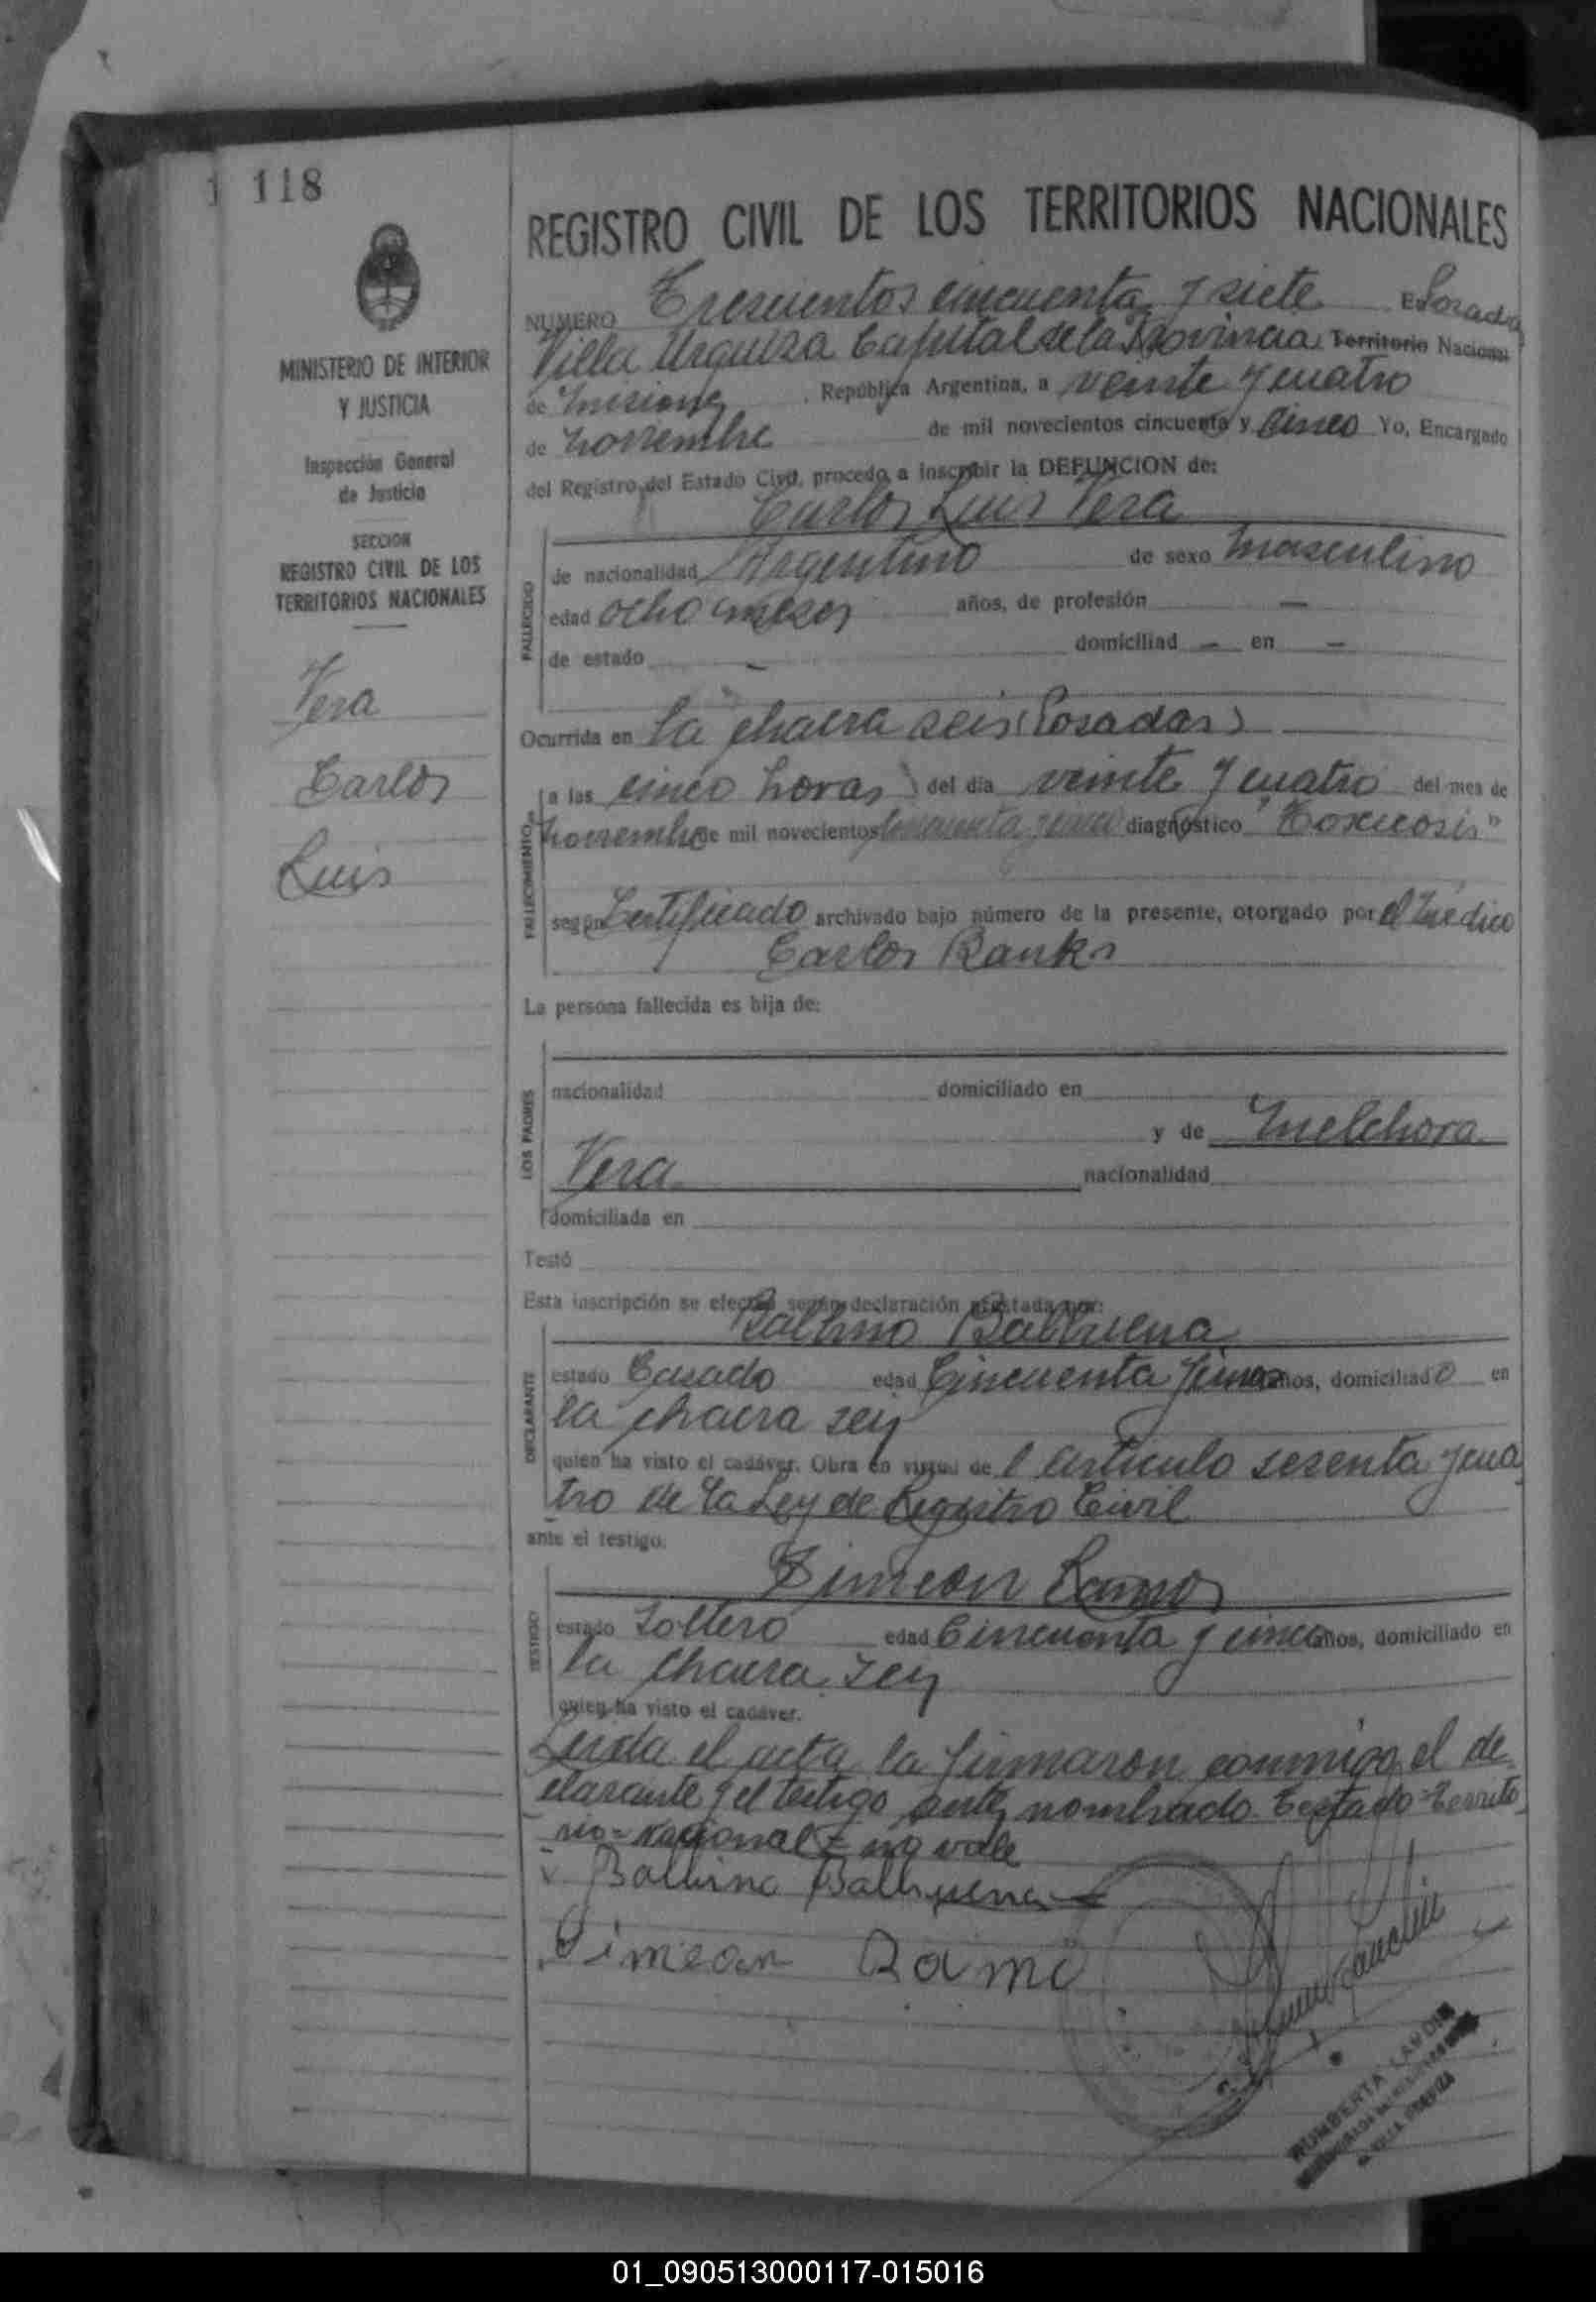 118
MINISTERIO DE INTERIOR
Y JUSTICIA
Inspección General
de Justicia
SECCION
REGISTRO CIVIL DE LOS
TERRITORIOS NACIONALES
Vera
Carlos
Luis
REGISTRO CIVIL DE LOS TERRITORIOS NACIONALES
NUMERO Trescientos cincuenta y siete En Posadas
Villa Urquiza Capital de la Provincia Territorio Nacional
de Misiones, República Argentina, a veinte y cuatro
de noviembre de mil novecientos cincuenta y cinco Yo, Encargado
del Registro del Estado Civil, procedo a inscribir la DEFUNCION de:
Carlos Luis Vera
FALLECIDO
de nacionalidad Argentino de sexo masculino
edad ocho meses años, de profesión —
de estado — domiciliad — en —
Ocurrida en la chacra seis (Posadas)
FALLECIMIENTO
a las cinco horas del día veinte y cuatro del mes de
noviembre de mil novecientos cincuenta y cinco diagnóstico "Toxicosis"
según Certificado archivado bajo número de la presente, otorgado por el médico
Carlos Banks
La persona fallecida es hija de:
LOS PADRES
nacionalidad domiciliado en
y de Melchora
Vera nacionalidad
domiciliada en
Testó
Esta inscripción se efectúa según declaración prestada por:
Balbino Balbuena
DECLARANTE
estado Casado edad Cincuenta y años, domiciliado en
la chacra seis
quien ha visto el cadáver. Obra en virtud del artículo sesenta y cua
tro de la Ley de Registro Civil
ante el testigo:
Simeon Ramos
TESTIGO
estado Soltero edad Cincuenta y cinco años, domiciliado en
la chacra seis
quien ha visto el cadáver.
Leida el acta la firmaron conmigo el de
clarante y el testigo antes nombrado. Testado = Territo
rio = Nacional = no vale
Balbino Balbuena
Simeon Ramo
RUMBERTA LANDI
VILLA URQUIZA
01_090513000117-015016